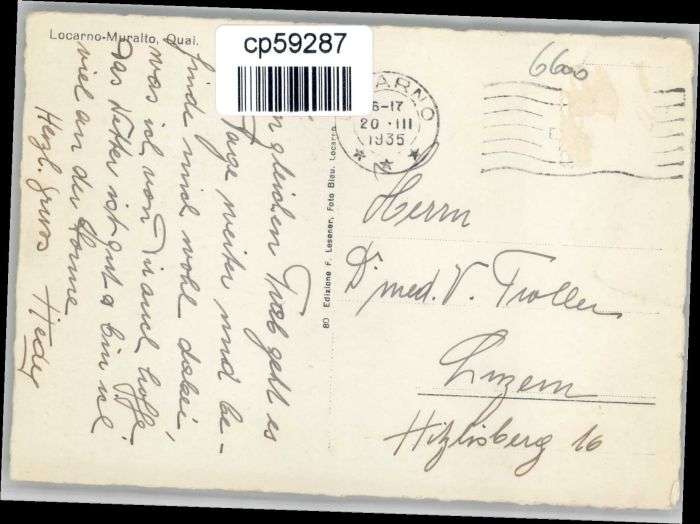 Locarno-Muralto, Quai.
cp59287
6600
n gleichen Trab geht es
Tage weiter und be-
finde mich wohl dabei,
was ich von Dir auch hoffe.
Das Wetter ist gut & bin
viel an der Sonne
Herzl. Gruss Hedy
80 Edizione F. Lesener, Foto Blau, Locarno
ARNO
6-17
20 · III
1935
Herrn
Dr med. V. Troller
Luzern
Hitzlisberg 16